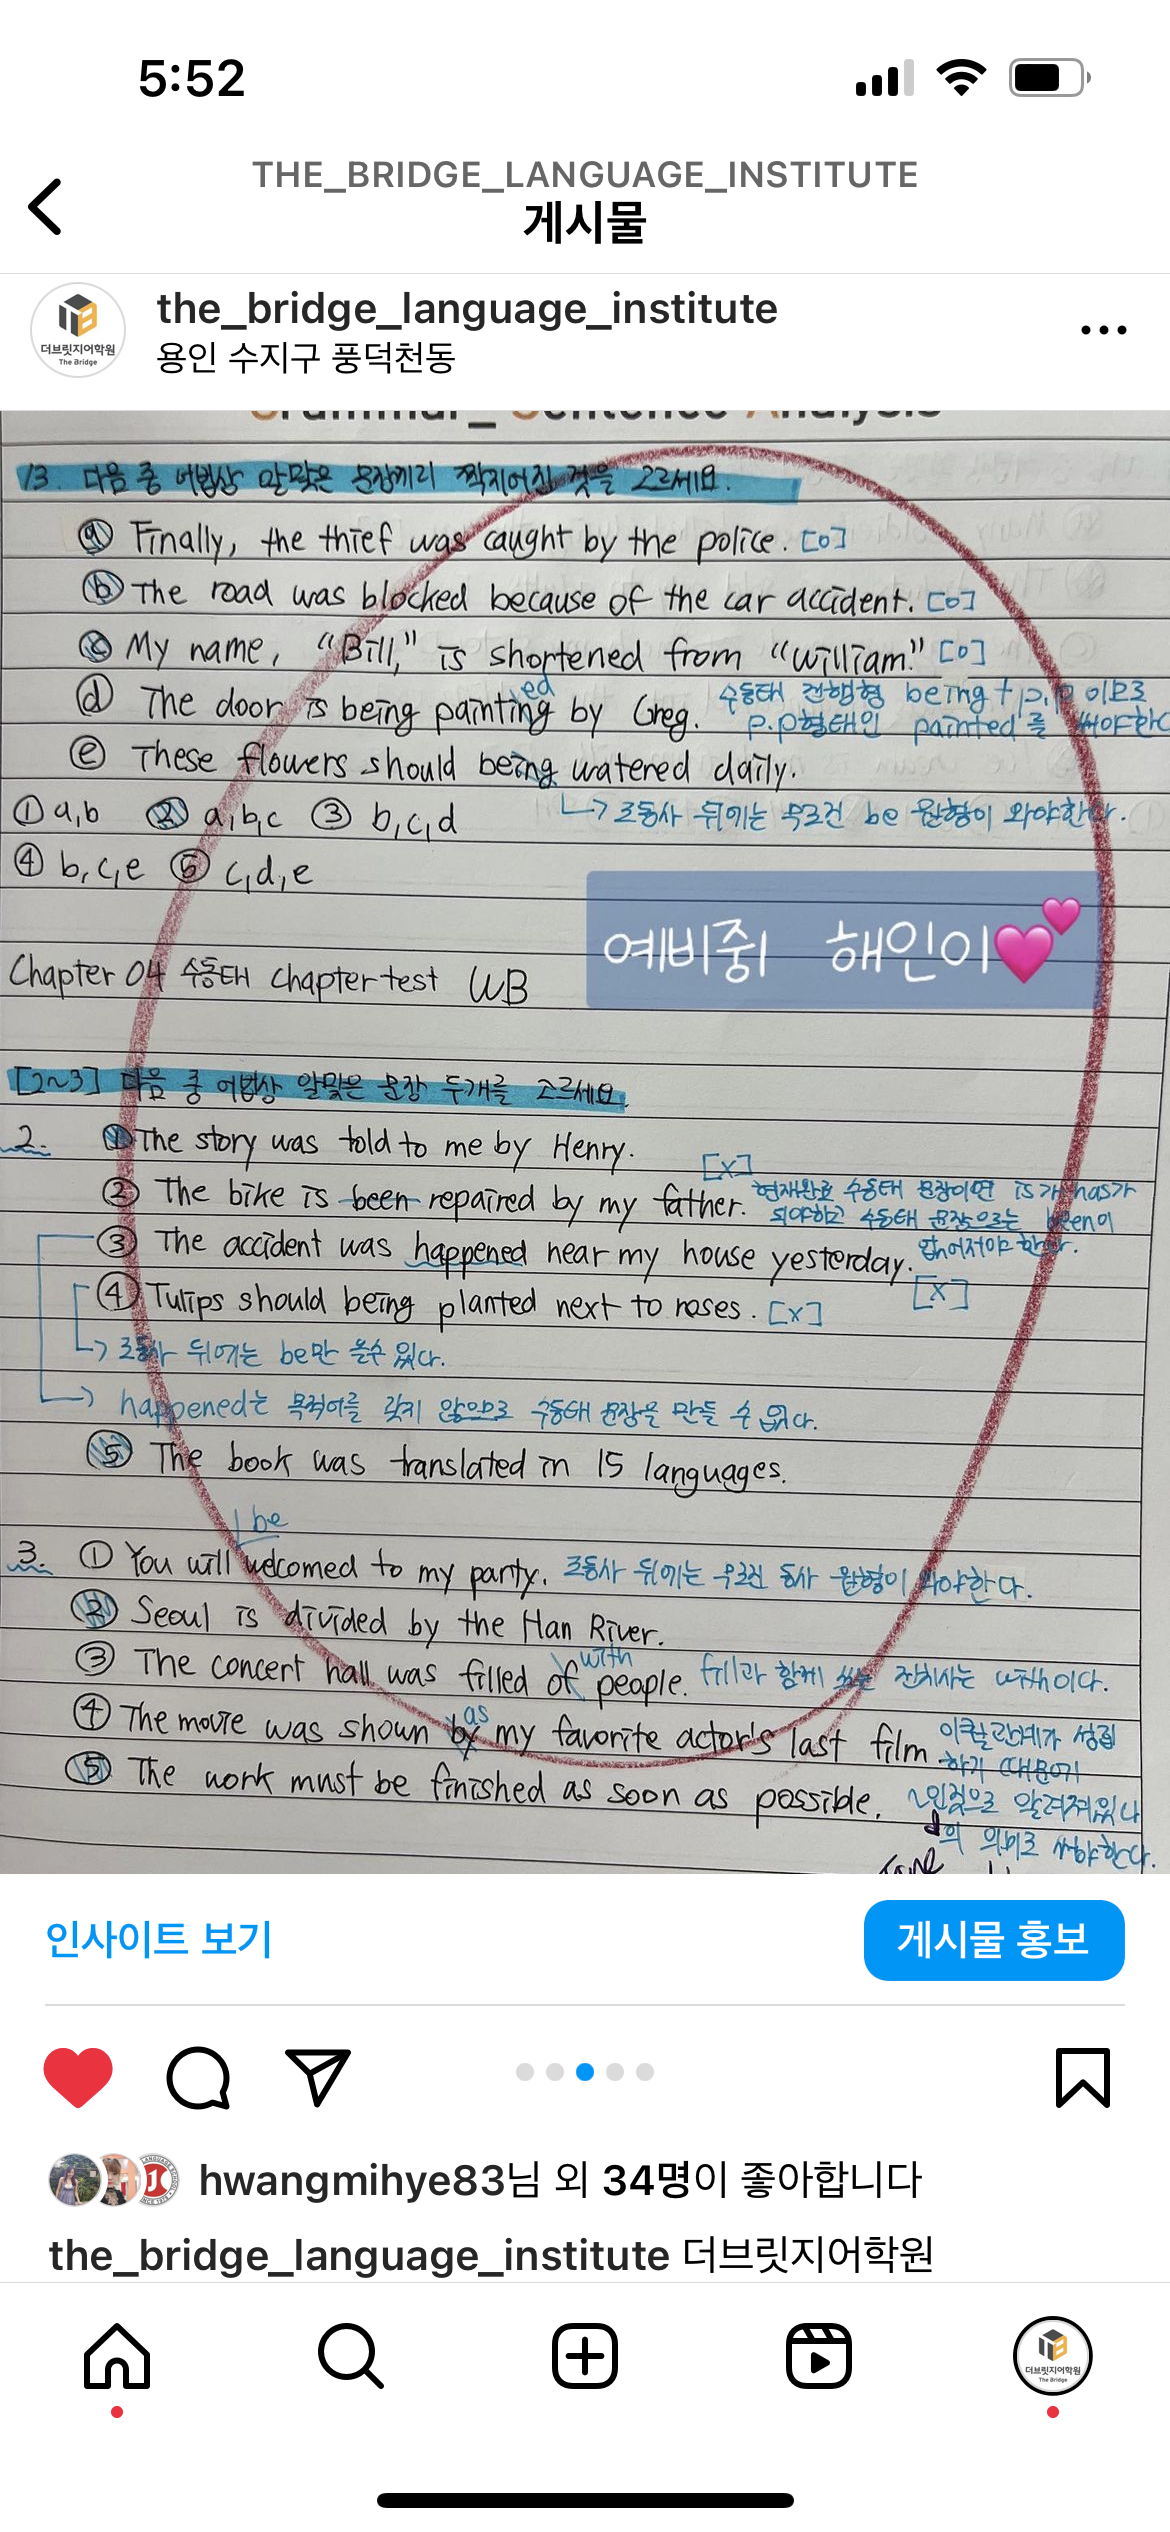 5:52
THE_BRIDGE_LANGUAGE_INSTITUTE
게시물
the_bridge_language_institute
용인 수지구 풍덕천동
더브릿지어학원
The Bridge
Grammar_ Sentence Analysis
13. 다음 중 어법상 알맞은 문장끼리 짝지어진 것을 고르세요.
ⓐ Finally, the thief was caught by the police. [o]
ⓑ The road was blocked because of the car accident. [o]
ⓒ My name, "Bill," is shortened from "William." [o]
ed
ⓓ The door is being painting by Greg. 수동태 진행형 being + p.p 이므로
p.p형태인 painted를 써야한다
ⓔ These flowers should being watered daily.
① a,b ② a,b,c ③ b,c,d
↳ 조동사 뒤에는 무조건 be 원형이 와야한다.
④ b,c,e ⑤ c,d,e
예비중1 해인이💕
Chapter 04 수동태 Chapter test WB
[2~3] 다음 중 어법상 알맞은 문장 두개를 고르세요.
2. ① The story was told to me by Henry.
② The bike is been repaired by my father. [x] 현재완료 수동태 문장이면 is가 has가
되야하고 수동태 문장으로는 been이
없어져야 한다.
③ The accident was happened near my house yesterday. [x]
④ Tulips should being planted next to roses. [x]
↳ 조동사 뒤에는 be만 올수 있다.
→ happened는 목적어를 갖지 않으므로 수동태 문장을 만들 수 없다.
⑤ The book was translated in 15 languages.
be
3. ① You will welcomed to my party. 조동사 뒤에는 무조건 동사 원형이 와야한다.
② Seoul is divided by the Han River.
with
③ The concert hall was filled of people. fill과 함께 쓰는 전치사는 with이다.
as
④ The movie was shown by my favorite actor's last film. 이퀄관계가 성립
하기 때문에
⑤ The work must be finished as soon as possible. ~인것으로 알려져있다
의 의미로 써야한다.
인사이트 보기
게시물 홍보
hwangmihye83님 외 34명이 좋아합니다
the_bridge_language_institute 더브릿지어학원
더브릿지어학원
The Bridge